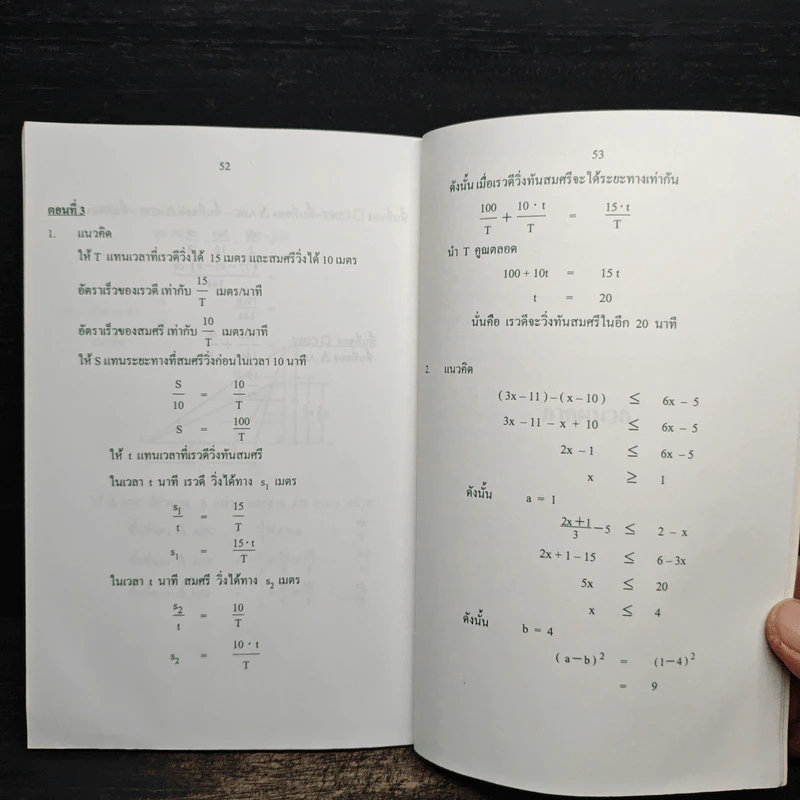 52
ตอนที่ 3
1. แนวคิด
ให้ T แทนเวลาที่เรวดีวิ่งได้ 15 เมตร และสมศรีวิ่งได้ 10 เมตร
อัตราเร็วของเรวดี เท่ากับ 15/T เมตร/นาที
อัตราเร็วของสมศรี เท่ากับ 10/T เมตร/นาที
ให้ S แทนระยะทางที่สมศรีวิ่งก่อนในเวลา 10 นาที
S/10 = 10/T
S = 100/T
ให้ t แทนเวลาที่เรวดีวิ่งทันสมศรี
ในเวลา t นาที เรวดี วิ่งได้ทาง s₁ เมตร
s₁/t = 15/T
s₁ = 15·t/T
ในเวลา t นาที สมศรี วิ่งได้ทาง s₂ เมตร
s₂/t = 10/T
s₂ = 10·t/T
53
ดังนั้น เมื่อเรวดีวิ่งทันสมศรีจะได้ระยะทางเท่ากัน
100/T + 10·t/T = 15·t/T
นำ T คูณตลอด
100 + 10t = 15 t
t = 20
นั่นคือ เรวดีจะวิ่งทันสมศรีในอีก 20 นาที
2. แนวคิด
(3x – 11) – (x – 10) ≤ 6x – 5
3x – 11 – x + 10 ≤ 6x – 5
2x – 1 ≤ 6x – 5
x ≥ 1
ดังนั้น a = 1
2x + 1/3 – 5 ≤ 2 – x
2x + 1 – 15 ≤ 6 – 3x
5x ≤ 20
x ≤ 4
ดังนั้น b = 4
(a – b)² = (1 – 4)²
= 9